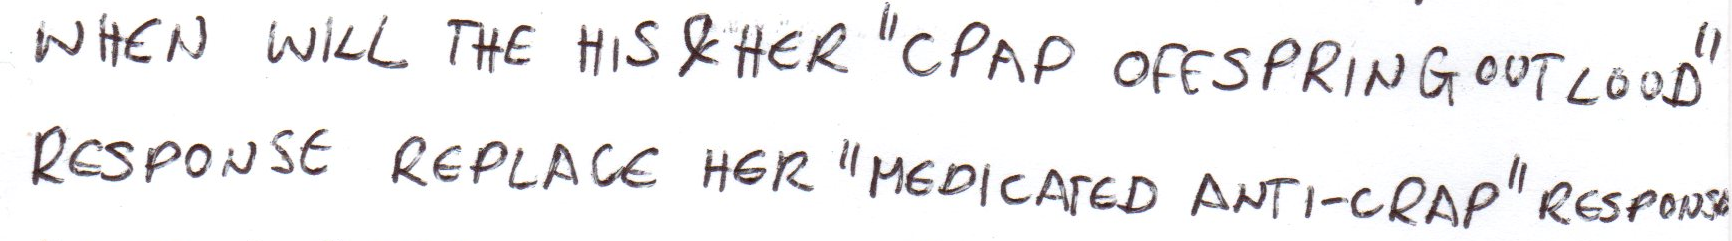 WHEN WILL THE HIS & HER "CPAP OFFSPRING OUT LOUD"
RESPONSE REPLACE HER "MEDICATED ANTI-CRAP" RESPONSE